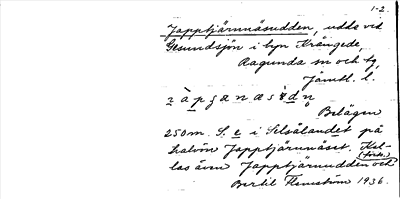 1-2.
Japptjärnnäsudden, udde vid
Gesundsjön i byn Krångede,
Ragunda sn och tg,
Jämtl. l.
Belägen
250 m. S. e i Selsålandet på
halvön Japptjärnnäset. Kal-
(förk.)
las även Japptjärnudden och
Bertil Flemström 1936.